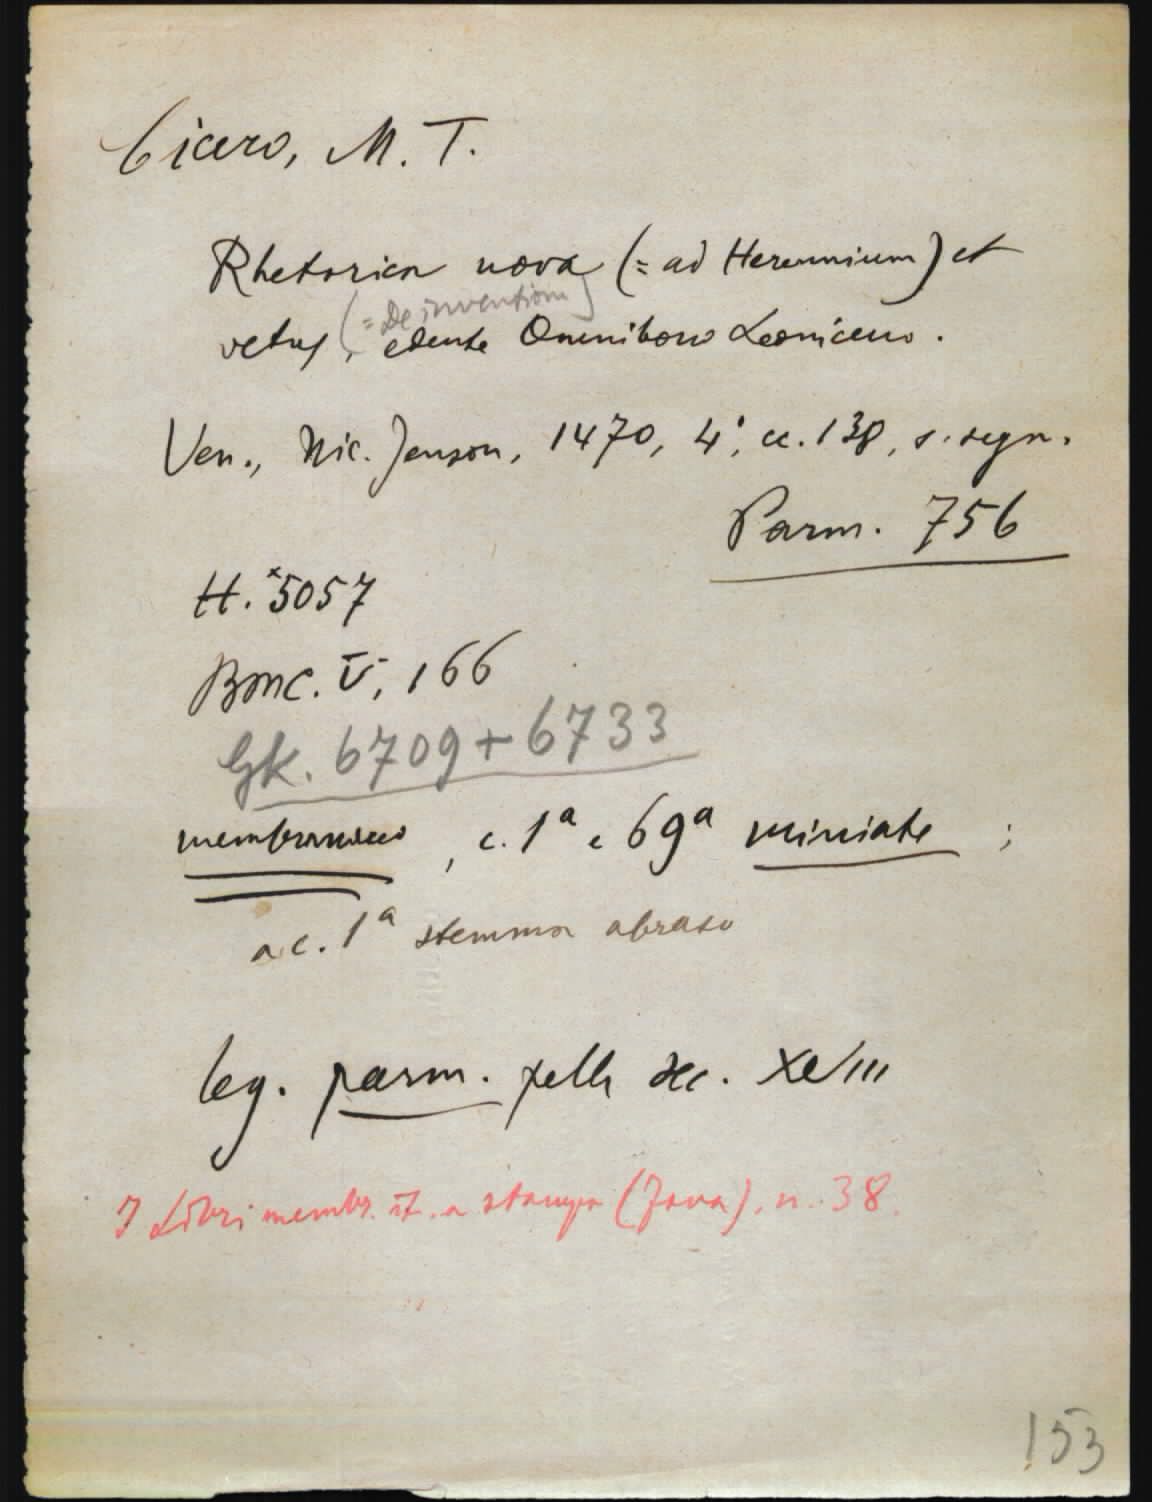 Cicero, M. T.
Rhetorica nova (= ad Herennium) et
(= De inventione)
vetus, edente Omnibono Leoniceno.
Ven., Nic. Jenson, 1470, 4°, cc. 138, s. segn.
Parm. 756
H. *5057
BMC. V, 166
GK. 6709 + 6733
membranaceo, c. 1ª e 69ª miniate;
a c. 1ª stemma abraso
leg. parm. pelle sec. XVIII
I Libri membr. it. a stampa (Zava), n. 38.
153